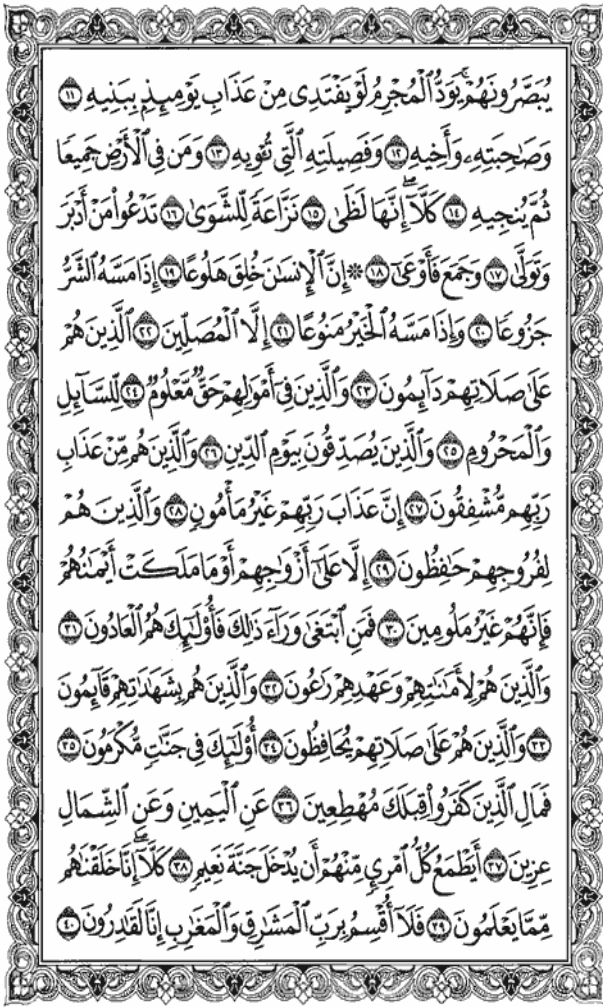 يُبَصَّرُونَهُمْ ۚ يَوَدُّ ٱلْمُجْرِمُ لَوْ يَفْتَدِى مِنْ عَذَابِ يَوْمِئِذِۭ بِبَنِيهِ ١١
وَصَٰحِبَتِهِۦ وَأَخِيهِ ١٢ وَفَصِيلَتِهِ ٱلَّتِى تُـْٔوِيهِ ١٣ وَمَن فِى ٱلْأَرْضِ جَمِيعًا
ثُمَّ يُنجِيهِ ١٤ كَلَّآ ۖ إِنَّهَا لَظَىٰ ١٥ نَزَّاعَةً لِّلشَّوَىٰ ١٦ تَدْعُوا۟ مَنْ أَدْبَرَ
وَتَوَلَّىٰ ١٧ وَجَمَعَ فَأَوْعَىٰٓ ١٨ ۞ إِنَّ ٱلْإِنسَٰنَ خُلِقَ هَلُوعًا ١٩ إِذَا مَسَّهُ ٱلشَّرُّ
جَزُوعًا ٢٠ وَإِذَا مَسَّهُ ٱلْخَيْرُ مَنُوعًا ٢١ إِلَّا ٱلْمُصَلِّينَ ٢٢ ٱلَّذِينَ هُمْ
عَلَىٰ صَلَاتِهِمْ دَآئِمُونَ ٢٣ وَٱلَّذِينَ فِىٓ أَمْوَٰلِهِمْ حَقٌّ مَّعْلُومٌ ٢٤ لِّلسَّآئِلِ
وَٱلْمَحْرُومِ ٢٥ وَٱلَّذِينَ يُصَدِّقُونَ بِيَوْمِ ٱلدِّينِ ٢٦ وَٱلَّذِينَ هُم مِّنْ عَذَابِ
رَبِّهِم مُّشْفِقُونَ ٢٧ إِنَّ عَذَابَ رَبِّهِمْ غَيْرُ مَأْمُونٍ ٢٨ وَٱلَّذِينَ هُمْ
لِفُرُوجِهِمْ حَٰفِظُونَ ٢٩ إِلَّا عَلَىٰٓ أَزْوَٰجِهِمْ أَوْ مَا مَلَكَتْ أَيْمَٰنُهُمْ
فَإِنَّهُمْ غَيْرُ مَلُومِينَ ٣٠ فَمَنِ ٱبْتَغَىٰ وَرَآءَ ذَٰلِكَ فَأُو۟لَٰٓئِكَ هُمُ ٱلْعَادُونَ ٣١
وَٱلَّذِينَ هُمْ لِأَمَٰنَٰتِهِمْ وَعَهْدِهِمْ رَٰعُونَ ٣٢ وَٱلَّذِينَ هُم بِشَهَٰدَٰتِهِمْ قَآئِمُونَ
٣٣ وَٱلَّذِينَ هُمْ عَلَىٰ صَلَاتِهِمْ يُحَافِظُونَ ٣٤ أُو۟لَٰٓئِكَ فِى جَنَّٰتٍ مُّكْرَمُونَ ٣٥
فَمَالِ ٱلَّذِينَ كَفَرُوا۟ قِبَلَكَ مُهْطِعِينَ ٣٦ عَنِ ٱلْيَمِينِ وَعَنِ ٱلشِّمَالِ
عِزِينَ ٣٧ أَيَطْمَعُ كُلُّ ٱمْرِئٍ مِّنْهُمْ أَن يُدْخَلَ جَنَّةَ نَعِيمٍ ٣٨ كَلَّآ ۖ إِنَّا خَلَقْنَٰهُم
مِّمَّا يَعْلَمُونَ ٣٩ فَلَآ أُقْسِمُ بِرَبِّ ٱلْمَشَٰرِقِ وَٱلْمَغَٰرِبِ إِنَّا لَقَٰدِرُونَ ٤٠